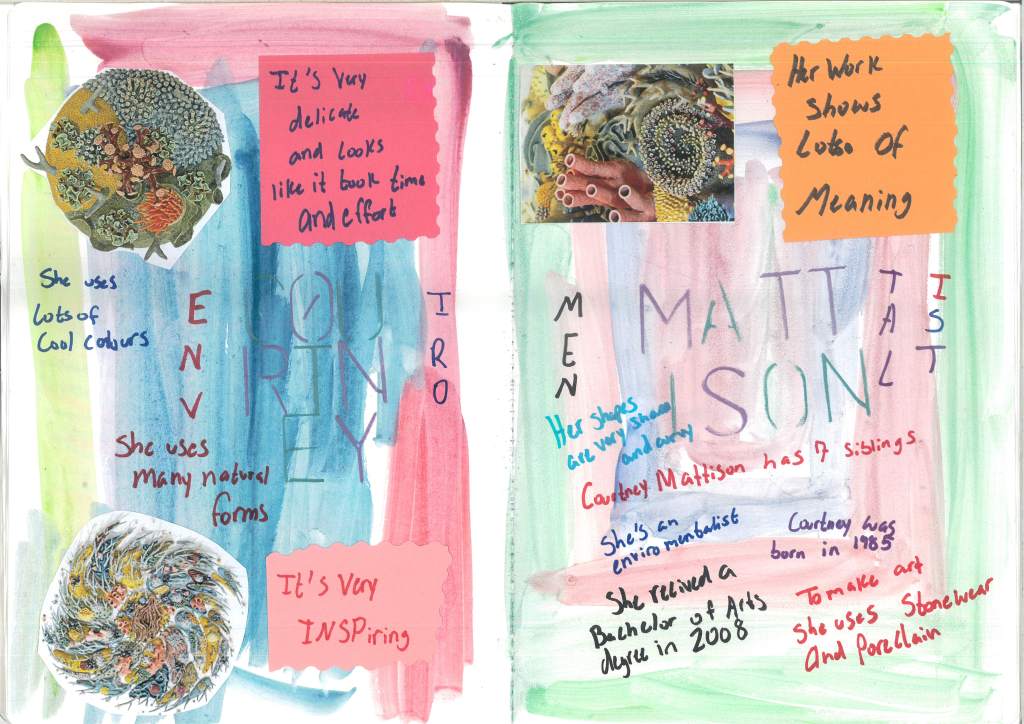 It's Very
delicate
and Looks
like it took time
and effort
She uses
Lots of
Cool colours
E
N
V
COU
RTN
EY
I
R
O
She uses
many natural
forms
It's Very
INSPiring
Her Work
Shows
Lots Of
Meaning
M
E
N
MATT
ISON
T
A
L
I
S
T
Her shapes
are very sharp
and curvy
Courtney Mattison has 7 siblings.
She's an
enviromentalist
Courtney was
born in 1985
She recived a
Bachelor of Arts
degree in 2008
To make art
She uses Stonewear
and Porcelain